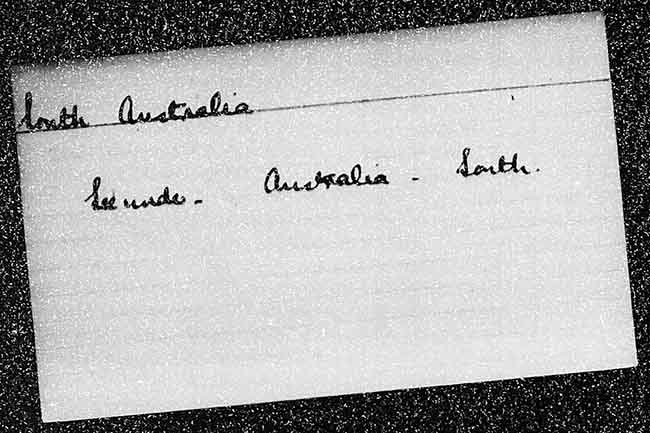 South Australia
See under - Australia - South.